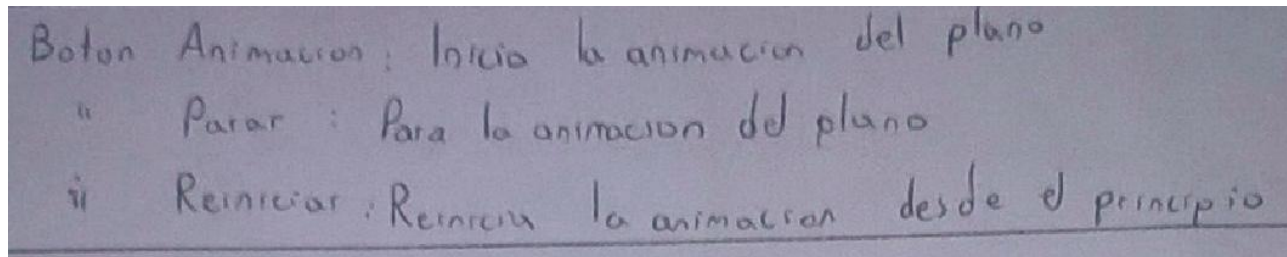 Boton Animacion: Inicia la animacion del plano
" Parar : Para la animacion del plano
" Reiniciar: Reinicia la animacion desde el principio